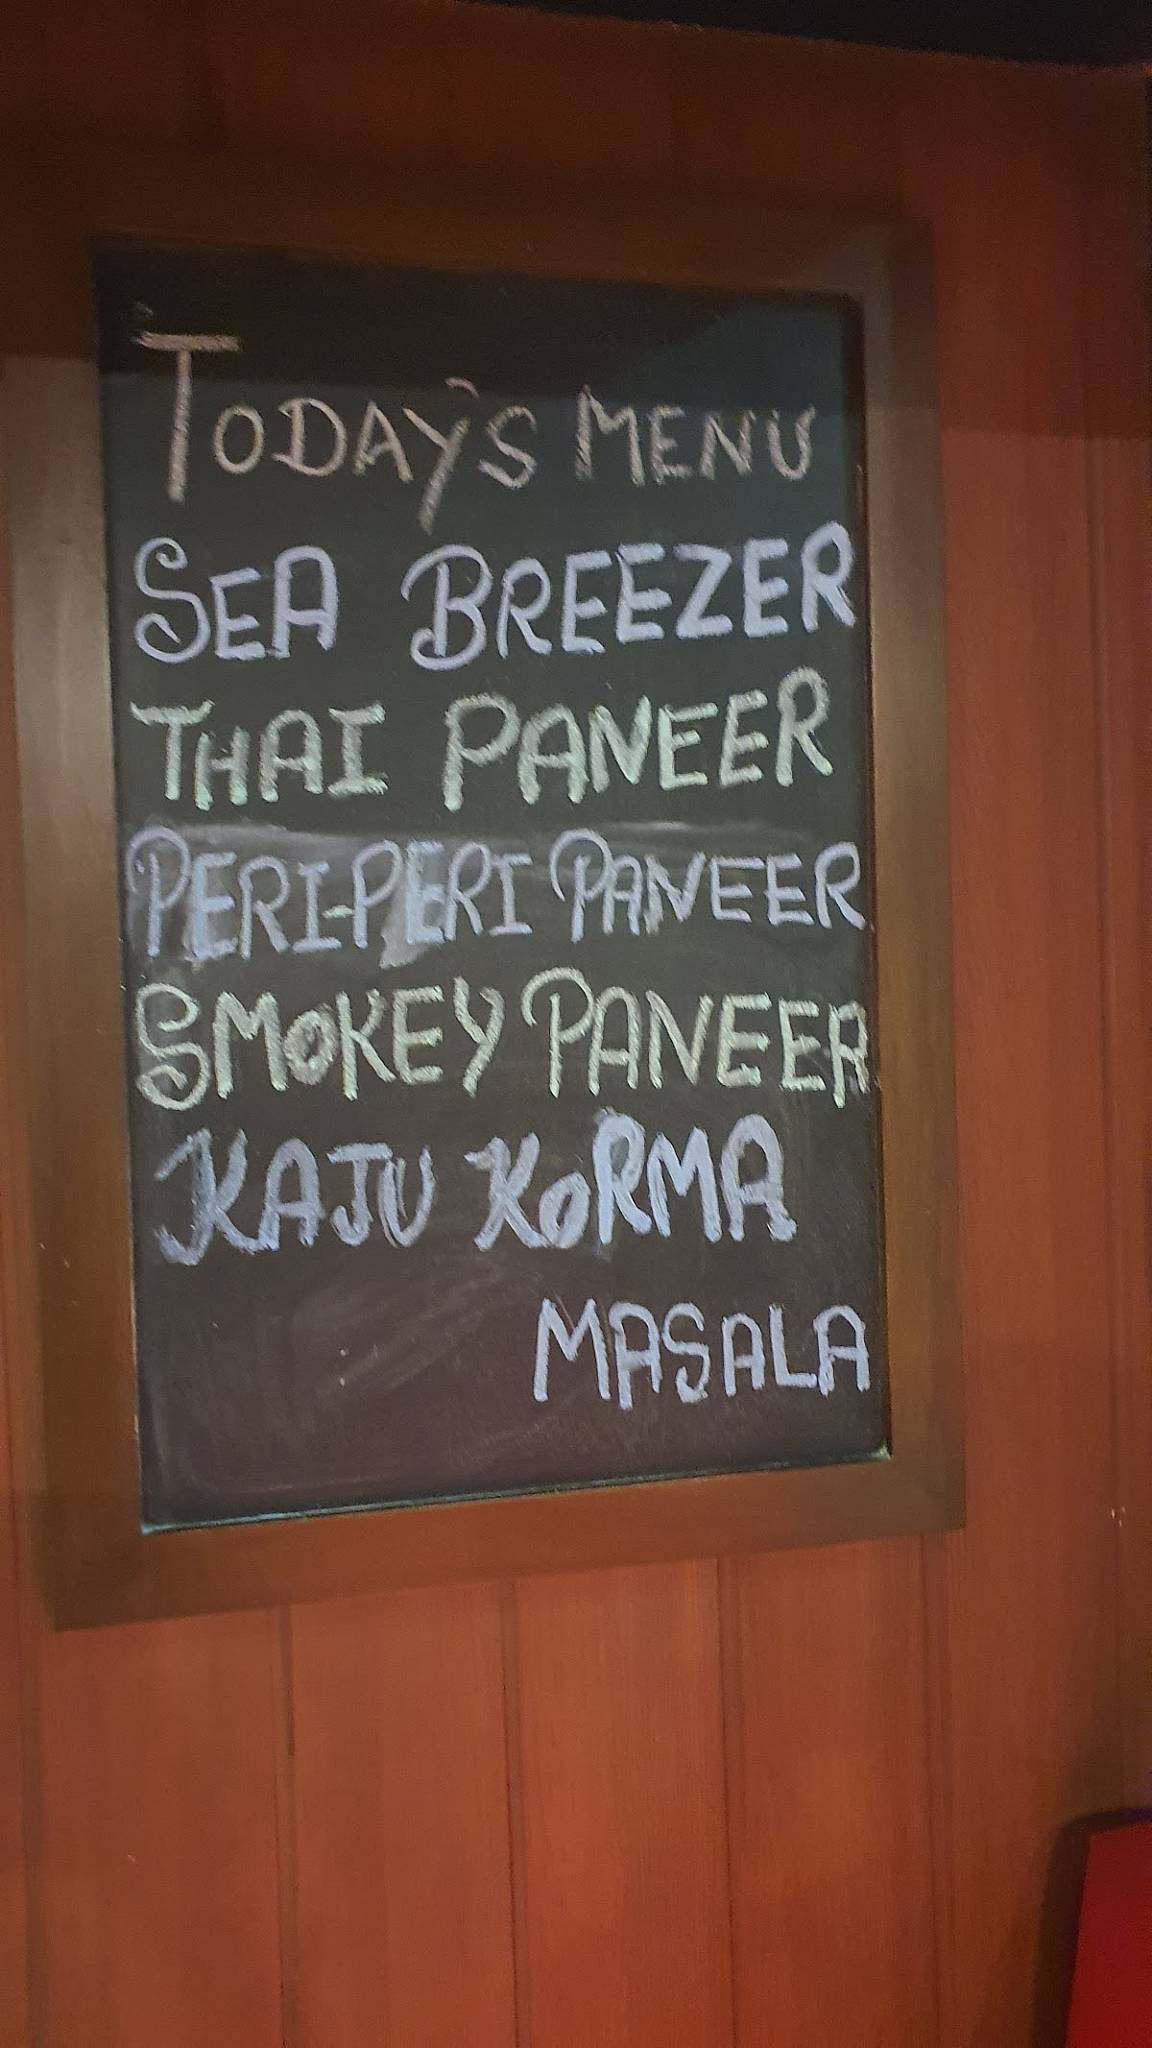 TODAY'S MENU
SEA BREEZER
THAI PANEER
PERI-PERI PANEER
SMOKEY PANEER
KAJU KORMA
MASALA